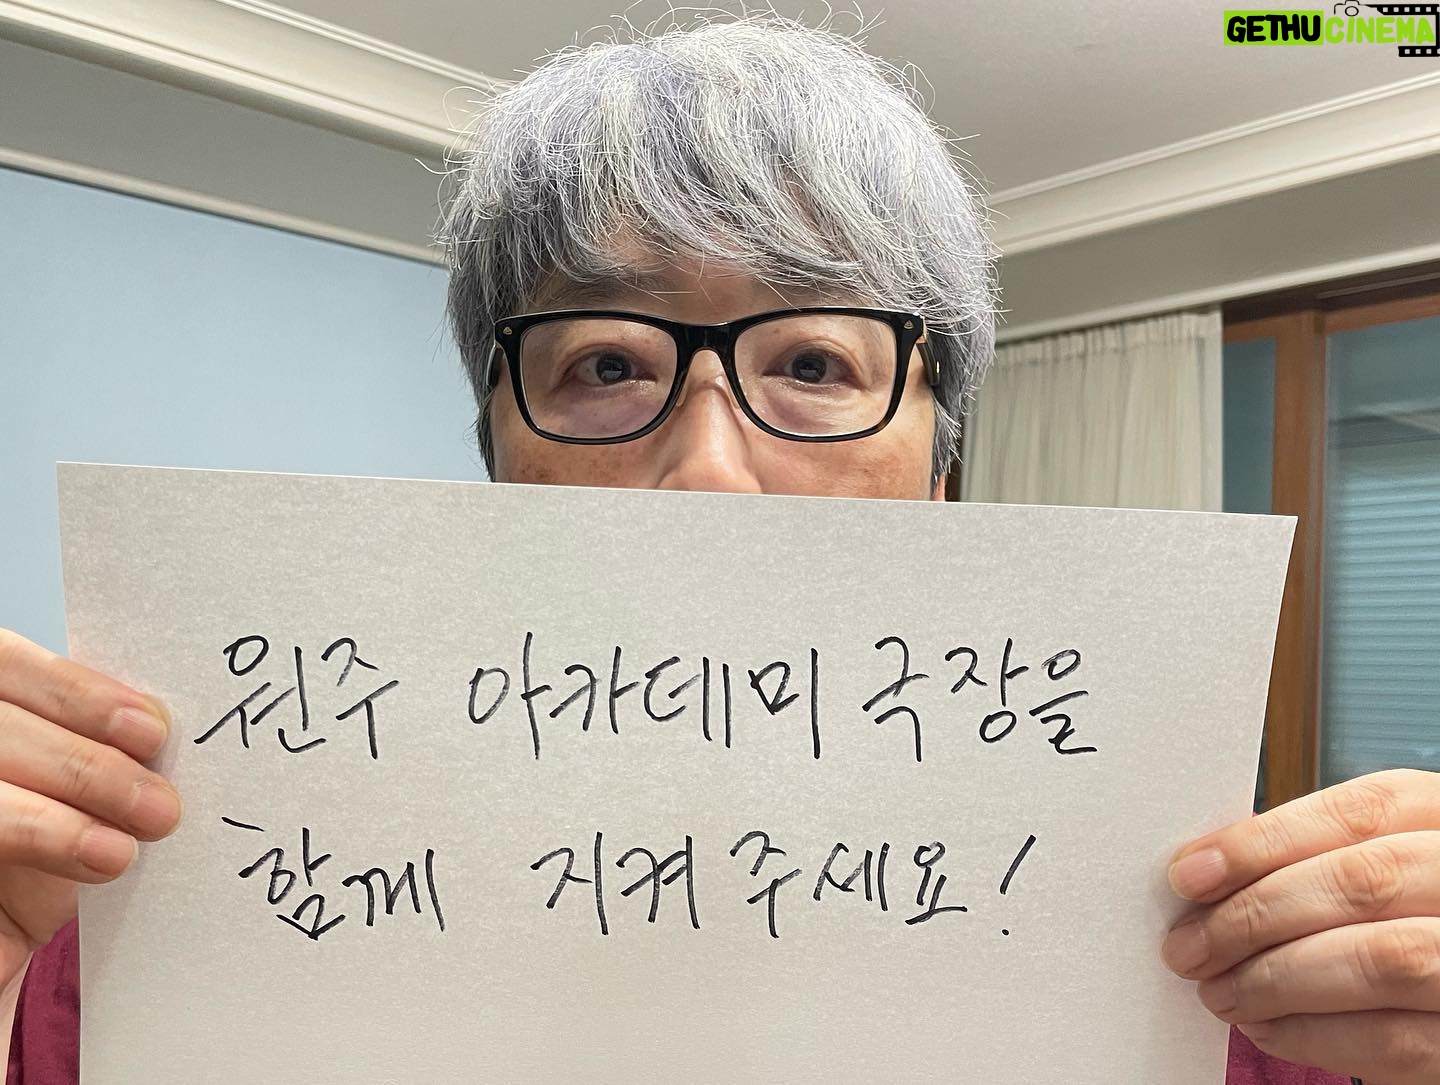 GETHUCINEMA
원주 아카데미 극장을
함께 지켜 주세요!